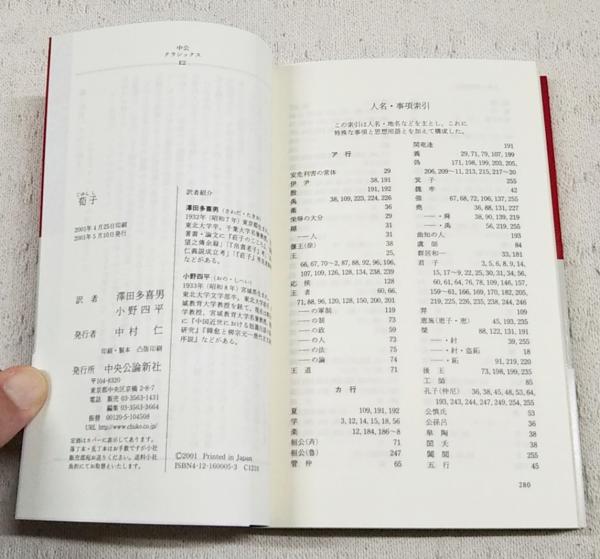 中公
クラシックス
E2
じゅんし
荀子
2001年4月25日印刷
2001年5月10日発行
訳者 澤田多喜男
小野四平
発行者 中村 仁
印刷・製本 凸版印刷
発行所 中央公論新社
〒104-8320
東京都中央区京橋2-8-7
電話 販売 03-3563-1431
編集 03-3563-3664
振替 00120-5-104508
URL http://www.chuko.co.jp/
定価はカバーに表示してあります。
落丁本・乱丁本はお手数ですが小社
販売部宛お送りください。送料小社
負担にてお取替えいたします。
訳者紹介
澤田多喜男(さわだ・たきお)
1932年(昭和7年)東京都生まれ。
東北大学卒。千葉大学名誉教授。
小野四平(おの・しへい)
1933年(昭和8年)宮城県生まれ。
©2001 Printed in Japan
ISBN4-12-160005-3 C1210
人名・事項索引
この索引は人名・地名などを主とし、これに
特殊な事項と思想用語とを加えて構成した。
ア 行
安危利害の常体 29
伊尹 38, 191
殷 191, 192
禹 38, 109, 223, 224, 226
栄辱の大分 29
——人 31
偃王(徐) 38
王 25,
66, 67, 70～2, 87, 92, 95, 96, 106,
107, 109, 126, 128, 134, 238, 239
応侯 128
王者 60, 66,
71, 88, 96, 120, 128, 150, 200, 201
——の軍制 119
——の制 73
——の政 59
——の人 73
——の法 75
——の論 74
王道 71
カ 行
夏 109, 191, 192
学 3, 12, 14, 15, 18, 56
楽 12, 184, 186～8
桓公(斉) 71
桓公(魯) 247
管仲 65
関竜逢 191
義 29, 71, 79, 107, 199
偽 171, 198, 199, 203, 205,
206, 209～11, 213, 215, 217
箕子 255
魏牟 42
強 67, 68, 72, 106, 137, 255
堯 36, 88, 131, 227
——・舜 38, 90, 139, 219
——・禹 56, 209, 211
曲知の人 193
虞師 84
群居和一 33, 181
君子 3, 5,
15, 17～9, 22, 25, 30, 31, 34, 56,
60, 61, 64, 76, 78, 109, 146, 157,
159～61, 166, 169, 170, 182, 205,
219, 225, 226, 235, 238, 244, 246
羿 109
恵施(恵子・恵) 45, 193, 235
桀 88, 122, 131, 191
——・紂 39, 255
——・紂・盗跖 18
——・跖 90, 219, 220
後王 73, 198, 199, 235
工師 85
孔子(仲尼) 36, 38, 45, 48, 53, 64,
193, 243, 244, 247, 249, 254, 255
公慎氏 53
公孫呂 36
皐陶 38
閎夭 38
闔閭 65
五行 45
280